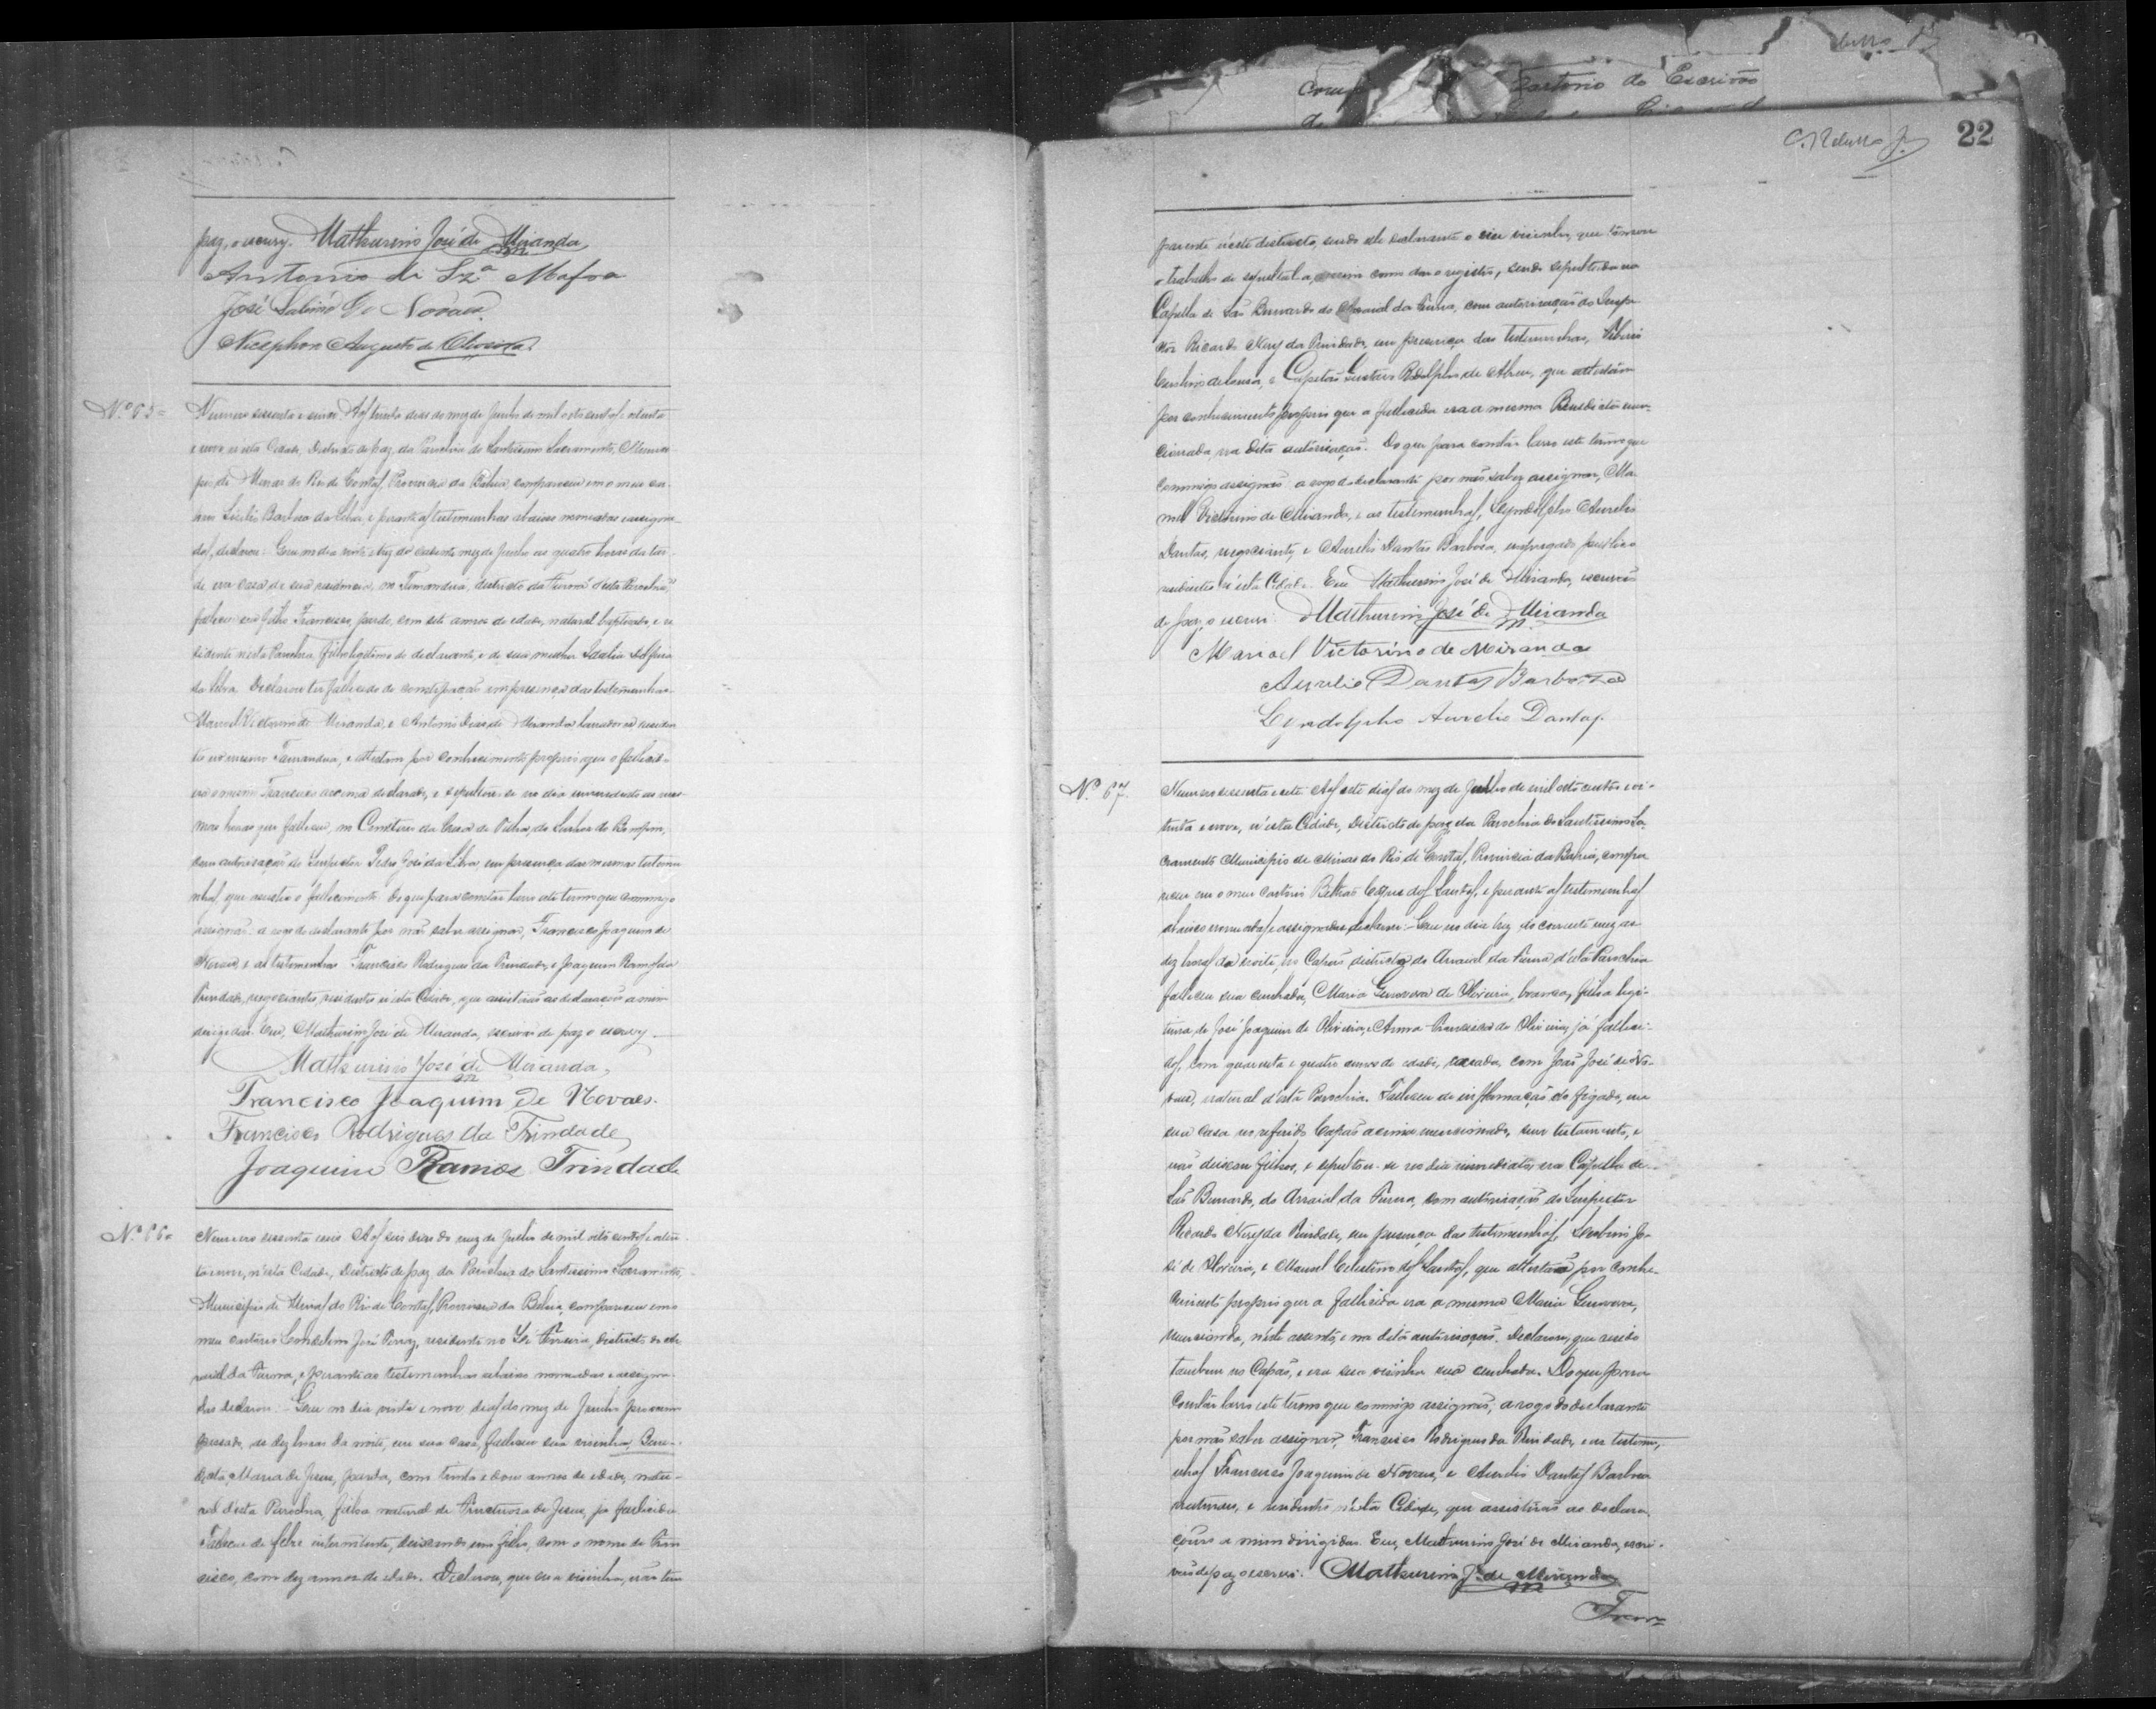 paz, o escrevy. Mathurino José de Miranda
Antonio de Sza Mafra
José Sabino de Novaes
Nicephoro Augusto de Oliveira
Nº 65
Numero sessenta e cinco. Aos trinta dias do mez de Junho de mil oito centos e oitenta
e nove nesta Cidade, Districto de paz da Parochia do Santissimo Sacramento, Munici-
pio de Minas do Rio de Contas, Provincia da Bahia, compareceu em o meu car-
torio Barbosa da Silva, e perante as testemunhas abaixo nomeadas e assigna-
das, declarou: Que no dia vinte do corrente mez de Junho as quatro horas da tar-
de em casa de sua residencia, no Tamanduá, districto da Furna d'esta Parochia,
falleceu seu filho Francisco, pardo, com sete annos de idade, natural baptisado, e re
sidente nesta Parochia, filho legitimo do declarante, e de sua mulher
da Silva. Declarou ter fallecido de constipação em presença das testemunhas
Manoel Victorino de Miranda, e Antonio de Miranda lavradores residen
tes no mesmo Tamanduá, e attestam por conhecimento proprio que o fallecido
era o mesmo Francisco acima declarado, e sepultou-se no dia immediato as mes-
mas horas que falleceu, no Cemiterio da Casa de Pedra, do Senhor do Bomfim,
com autorisação do Inspector Pedro José da Silva, em presença das mesmas testemu
nhas, que assistio o fallecimento. Do que para constar lavro este termo que commigo
assignão: a rogo do declarante por não saber assignar, Francisco Joaquim de
Novaes, e as testemunhas Francisco Rodrigues da Trindade, e Joaquim Ramos da
Trindade, negociantes, residentes n'esta Cidade, que assistirão as declarações a mim
dirigidas. Eu, Mathurino José de Miranda, escrivão de paz o escrevy
Mathurino José de Miranda
Francisco Joaquim de Novaes.
Francisco Rodrigues da Trindade
Joaquim Ramos Trindade
Nº 66
Numero sessenta e seis. Aos seis dias do mez de Julho de mil oito centos e oiten-
ta e nove, n'esta Cidade, Districto de paz da Parochia do Santissimo Sacramento,
Municipio de Minas do Rio de Contas, Provincia da Bahia, compareceu em o
meu cartorio José Ferraz, residente no districto do Ar-
raial da Furna, e perante as testemunhas abaixo nomeadas e assigna-
das declarou: Que no dia vinte e nove dias do mez de Junho proximo
passado, as dez horas da noite, em sua casa, falleceu sua visinha, Bene-
dicta Maria de Jesus, parda, com trinta e dous annos de idade, natu-
ral desta Parochia, filha natural de Fructuosa de Jesus, ja fallecida.
Falleceu de febre intermitente, deixando um filho, com o nome de Fran
cisco, com dez annos de idade. Declarou, que sua visinha, não tem
22
parente n'este districto, sendo elle declarante o seu visinho, que tomou
o trabalho de sepultal-a, assim como dar o registro, sendo sepultada na
Capella de São Bernardo do Arraial da Furna, com autorisação do Inspe
ctor Ricardo Nery da Trindade, em presença das testemunhas,
e Capitão Gustavo Rodolpho de Abreu, que attestão
por conhecimento proprio que a fallecida era a mesma Benedicta men-
cionada, na dita autorisação. Do que para constar lavro este termo que
commigo assignão: a rogo do declarante por não saber assignar, Ma-
noel Victorino de Miranda, e as testemunhas, Lyndolpho Aurelio
Dantas, negociante, e Aurelio Dantas Barbosa, empregado publico
residentes n'esta Cidade. Eu Mathurino José de Miranda, escrivão
de paz, o escrevi. Mathurino José de Miranda
Manoel Victorino de Miranda
Aurelio Dantas Barbosa
Lyndolpho Aurelio Dantas.
Nº 67.
Numero sessenta e sete. Aos sete dias do mez de Julho de mil oito centos e oi-
tenta e nove, n'esta Cidade, Districto de paz da Parochia do Santissimo Sa-
cramento Municipio de Minas do Rio de Contas, Provincia da Bahia, compa
receu em o meu cartorio Beltrão dos Santos, e perante as testemunhas
abaixo nomeadas e assignadas declarou: Que no dia trez do corrente mez as
dez horas da noite, no Capão, districto do Arraial da Furna d'esta Parochia
falleceu sua cunhada, Maria Genoveva de Oliveira, branca, filha legi-
tima, de José Joaquim de Oliveira, e Anna Francisca de Oliveira, já falleci-
dos, com quarenta e quatro annos de idade, casada com João José de No-
vaes, natural d'esta Parochia. Falleceu de inflamação do figado, em
sua casa no referido Capão acima mencionado, sem testamento, e
não deixou filhos, e sepultou-se no dia immediato, na Capella de
São Bernardo, do Arraial da Furna, com autorisação do Inspector
Ricardo Nery da Trindade, em presença das testemunhas, Jo-
sé de Oliveira, e Manoel Celestino dos Santos, que attestão por conhe-
cimento proprio que a fallecida era a mesma Maria Genoveva,
mencionada, n'este assento, e na dita autorisação. Declarou, que reside
tambem no Capão, e era sua visinha sua cunhada. Do que para
constar lavro este termo que commigo assignão, a rogo do declarante
por não saber assignar, Francisco Rodrigues da Trindade, e as testemu-
nhas Francisco Joaquim de Novaes, e Aurelio Dantas Barbosa
naturaes, e residentes n'esta Cidade, que assistirão as declara-
ções a mim dirigidas. Eu, Mathurino José de Miranda, escri-
vão de paz o escrevi. Mathurino Je. de Miranda
Fran